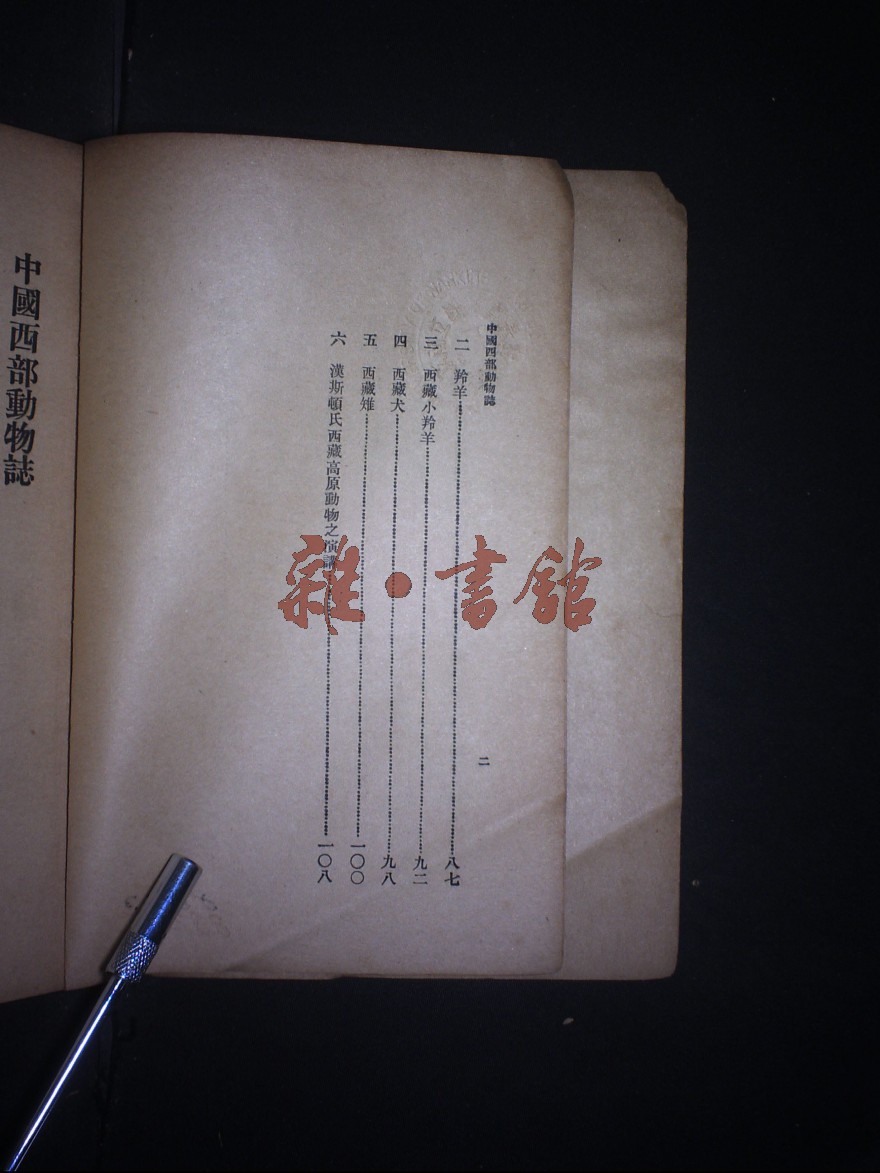 中國西部動物誌
二　羚羊……八七
三　西藏小羚羊……九二
四　西藏犬……九八
五　西藏雉……一〇〇
六　漢斯頓氏西藏高原動物之演講……一〇八
二
中國西部動物誌
雜·書館